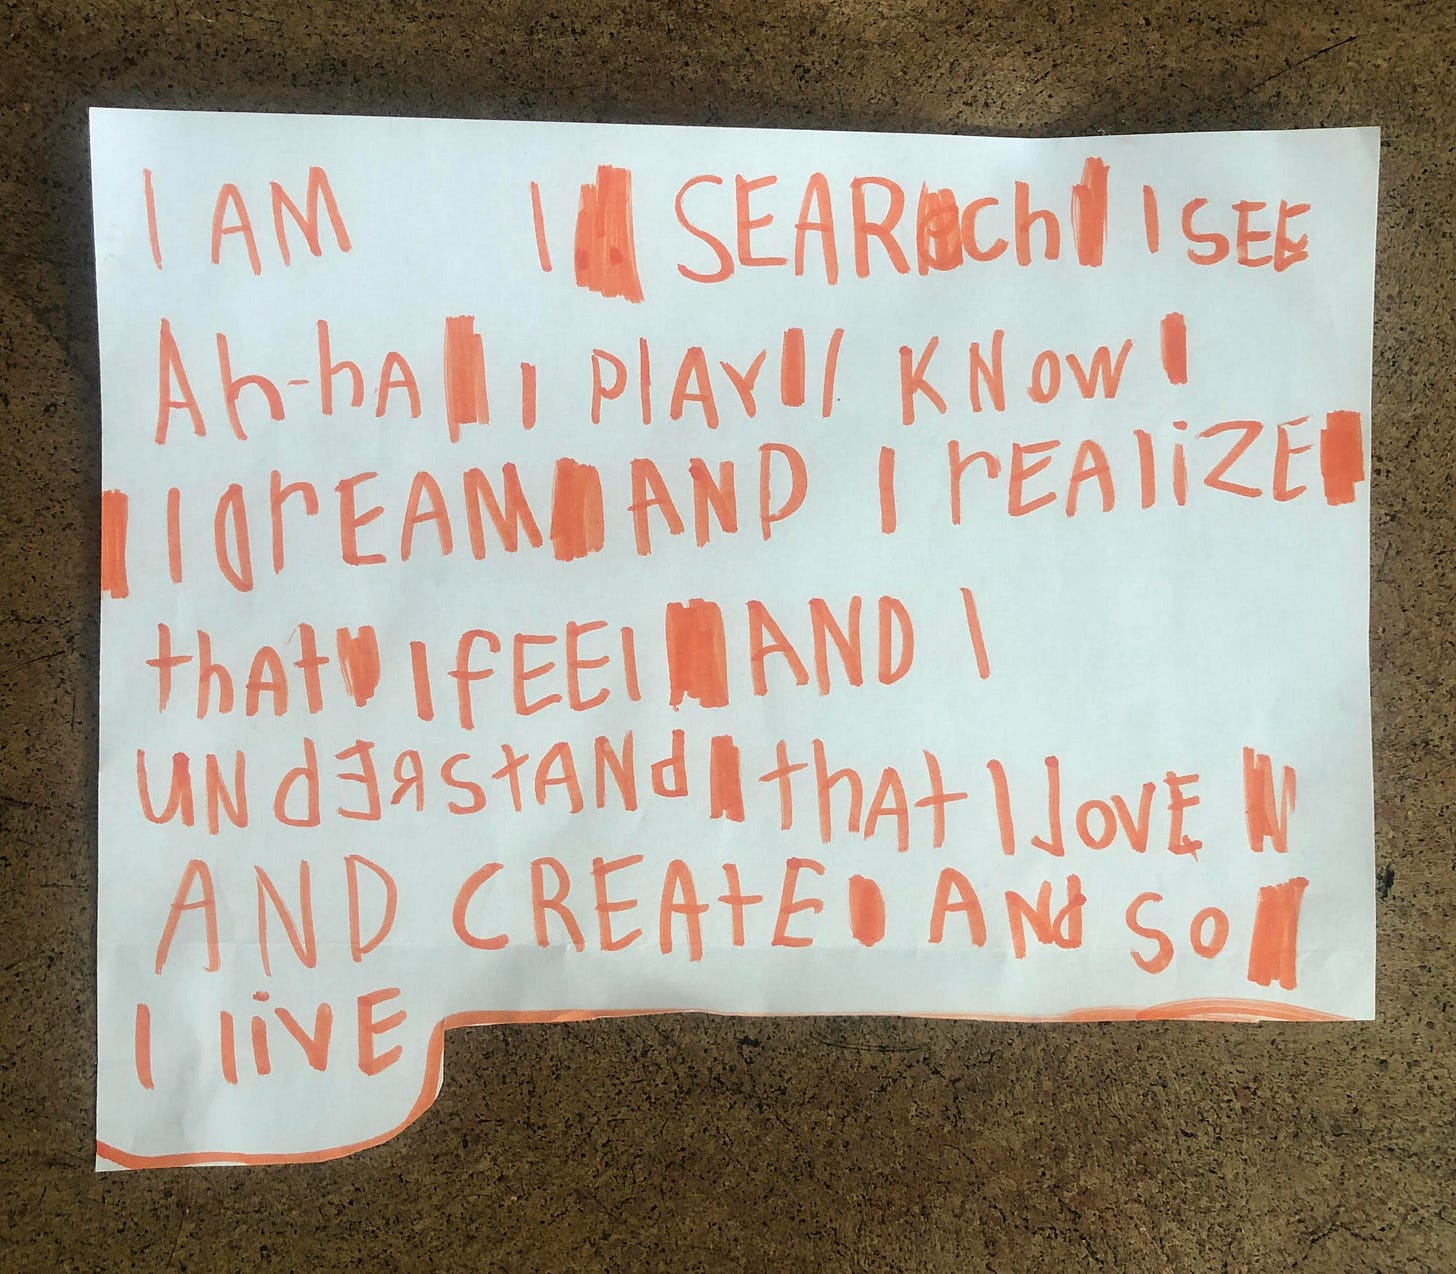 I AM I SEARch I SEE
Ah-hA I plAY I KNow
I drEAM AND I rEAliZE
thAt I fEEl AND I
UNdERstANd thAt I lovE
AND CREAtE ANd So
I livE